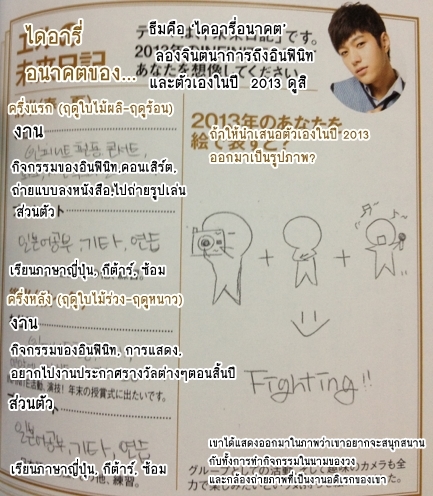 ไดอารี่
อนาคตของ...
未来日記
ธีมคือ 'ไดอารี่อนาคต'
です。
ลองจินตนาการถึงอินฟินิท
あなたを想像してください
และตัวเองในปี 2013 ดูสิ
ครึ่งแรก (ฤดูใบไม้ผลิ-ฤดูร้อน)
งาน
กิจกรรมของอินฟินิท,คอนเสิร์ต,
ถ่ายแบบลงหนังสือ,ไปถ่ายรูปเล่น
ส่วนตัว
일본어공부, 기타, 연습
เรียนภาษาญี่ปุ่น, กีต้าร์, ซ้อม
ครึ่งหลัง (ฤดูใบไม้ร่วง-ฤดูหนาว)
งาน
กิจกรรมของอินฟินิท, การแสดง,
อยากไปงานประกาศรางวัลต่างๆตอนสิ้นปี
活動、演技! 年末の授賞式に出たいです。
ส่วนตัว
일본어공부, 기타, 연습
เรียนภาษาญี่ปุ่น, กีต้าร์, ซ้อม
その他、練習。
2013年のあなたを
ถ้าให้นำเสนอตัวเองในปี 2013
絵で表すと?
ออกมาเป็นรูปภาพ?
+ +
Fighting!!
เขาได้แสดงออกมาในภาพว่าเขาอยากจะสนุกสนาน
กับทั้งการทำกิจกรรมในนามของวง
และกล้องถ่ายภาพที่เป็นงานอดิเรกของเขา